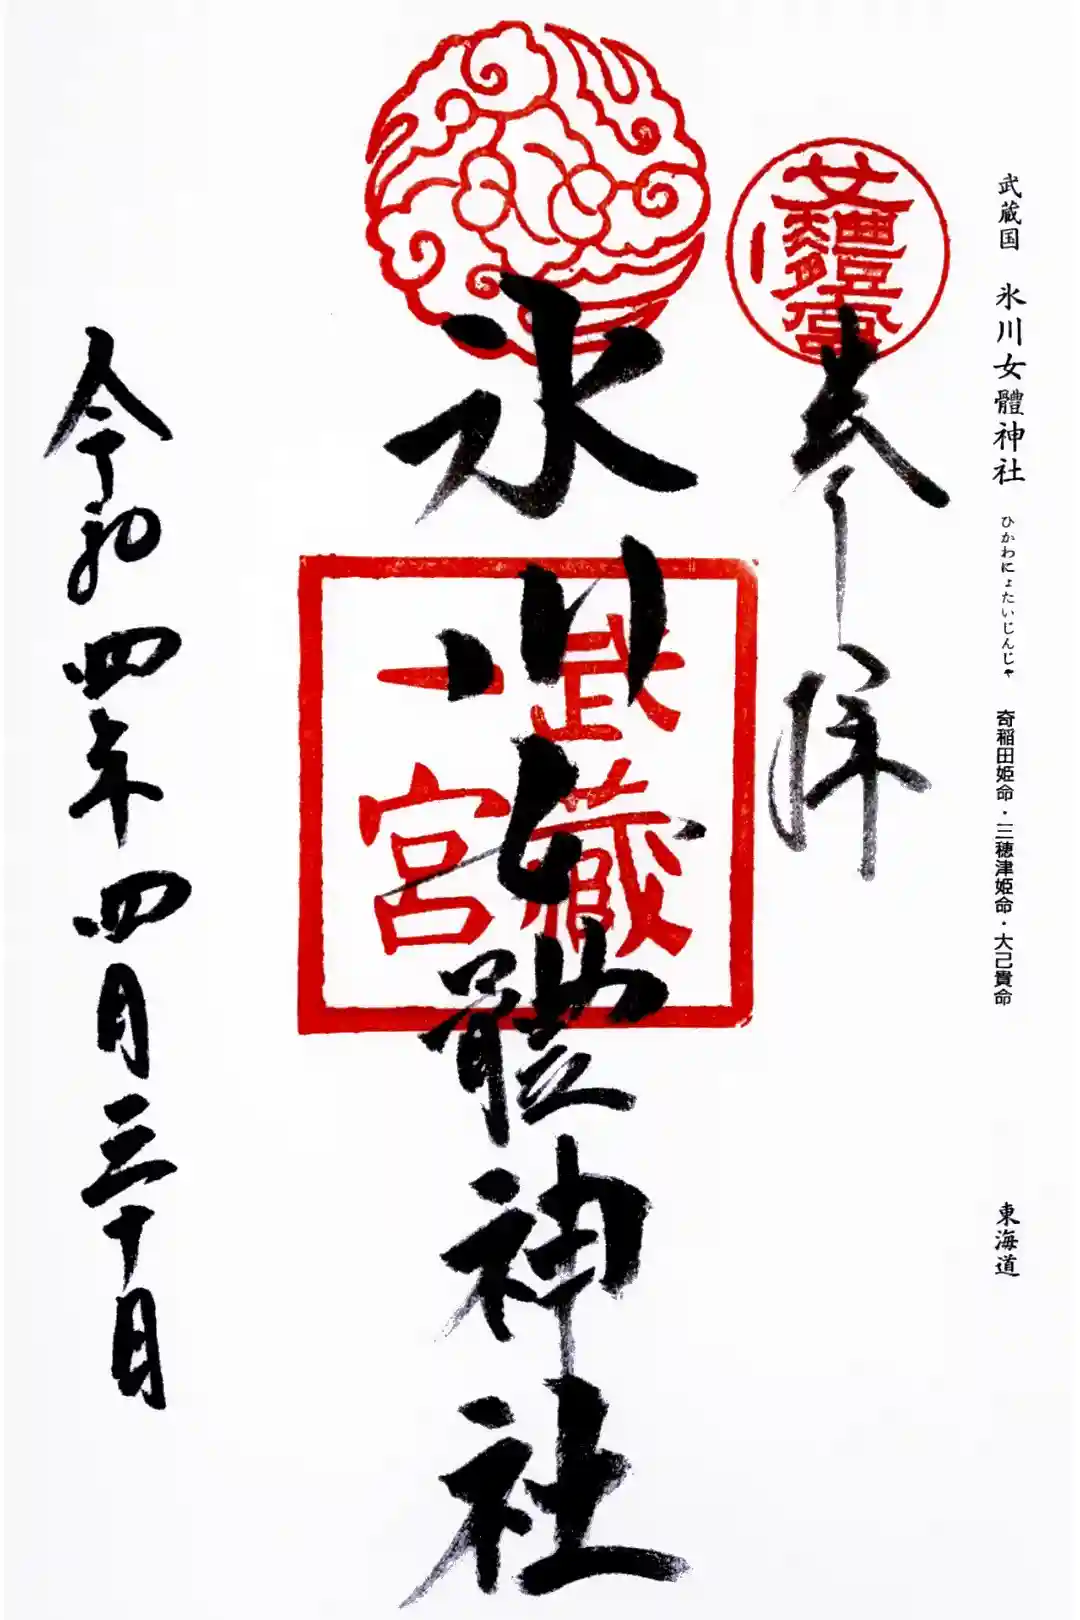 武蔵国 氷川女體神社 ひかわにょたいじんじゃ 奇稲田姫命・三穂津姫命・大己貴命 東海道
女體宮
参拝
氷川女體神社
武蔵
一宮
令和四年四月三十日